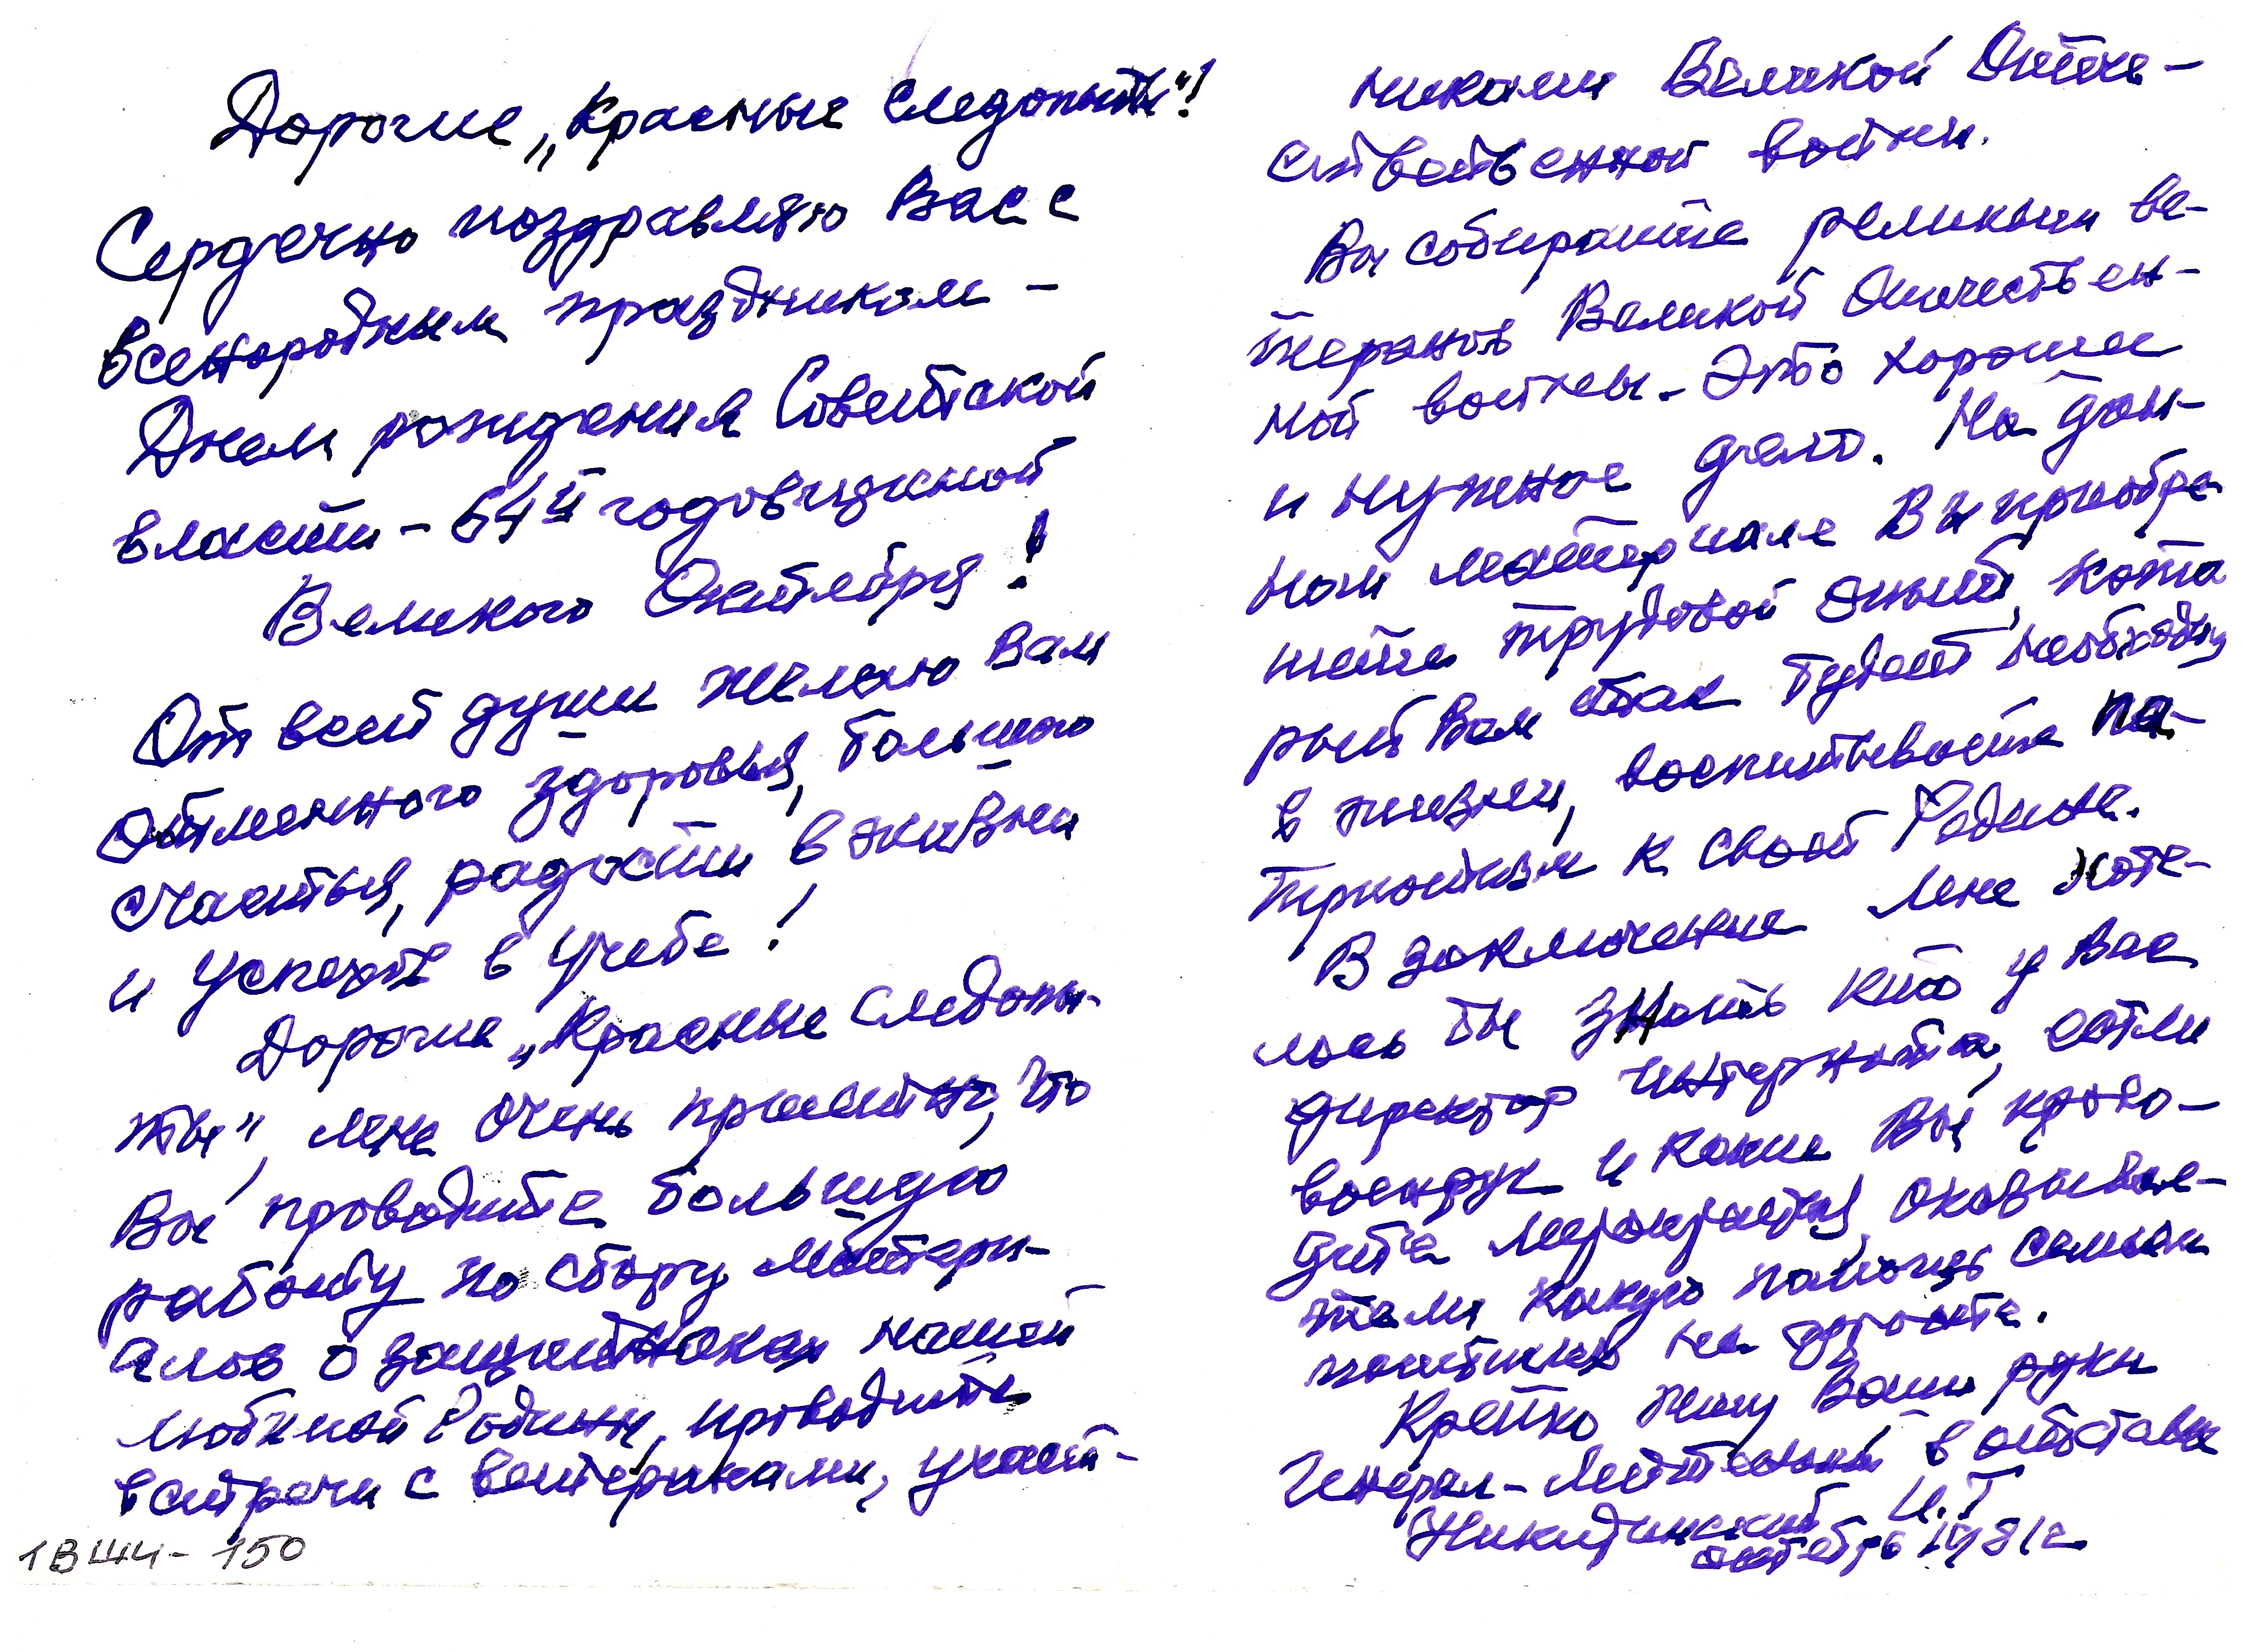 Дорогие „Красные следопыты"!
Сердечно поздравляю Вас с
всенародным праздником –
Днем рождения Советской
власти – 64й годовщиной
Великого Октября!
От всей души желаю Вам
отменного здоровья, большого
счастья, радости в жизни
и успехов в учебе!
Дорогие „Красные следопы-
ты", мне очень приятно, что
Вы проводите большую
работу по сбору матери-
алов о защитниках нашей
любимой Родины, проводите
встречи с ветеранами, участ-
1ВШЧ – 150
никами Великой Отече-
ственной войны.
Вы собираете реликвии ве-
теранов Великой Отечествен-
ной войны. Это хорошее
и нужное дело. На дан-
ном материале Вы приобре
тете трудовой опыт, кото
рый Вам так будет необходим
в жизни, воспитываете па-
триотизм к своей Родине.
В заключение мне хоте-
лось бы знать кто у Вас
директор интерната, есть ли
военрук и какие Вы прово-
дите мероприятия, оказывае-
те ли какую помощь семьям
погибших на фронте.
Крепко жму Ваши руки
Генерал-лейтенант в отставке
Никитинский И.Т
октябрь 1981г